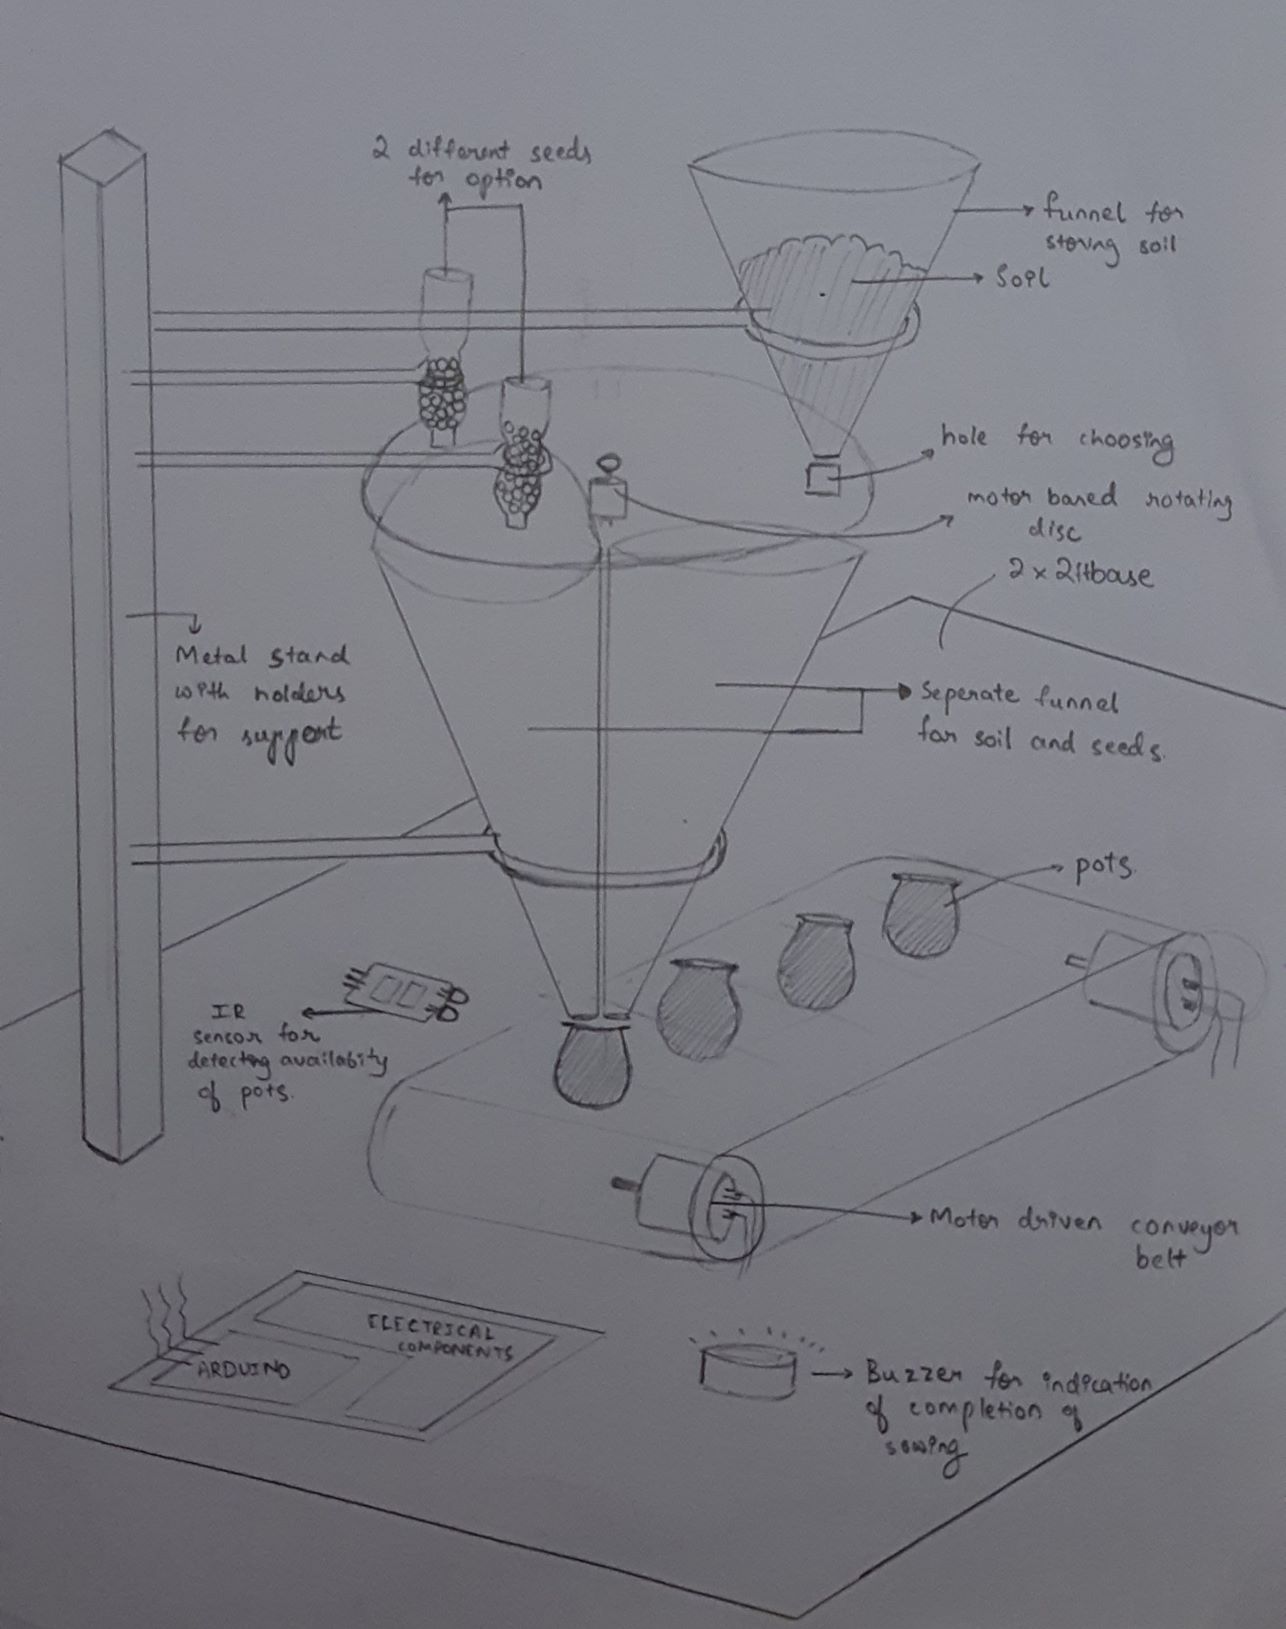 2 different seeds
for option
funnel for
storing soil
Soil
hole for choosing
motor based rotating
disc
2 x 2ft base
Metal stand
with holders
for support
Seperate funnel
for soil and seeds.
pots.
IR
sensor for
detecting availabity
of pots.
Motor driven conveyor
belt
ELECTRICAL
COMPONENTS
ARDUINO
Buzzer for indication
of completion of
sowing